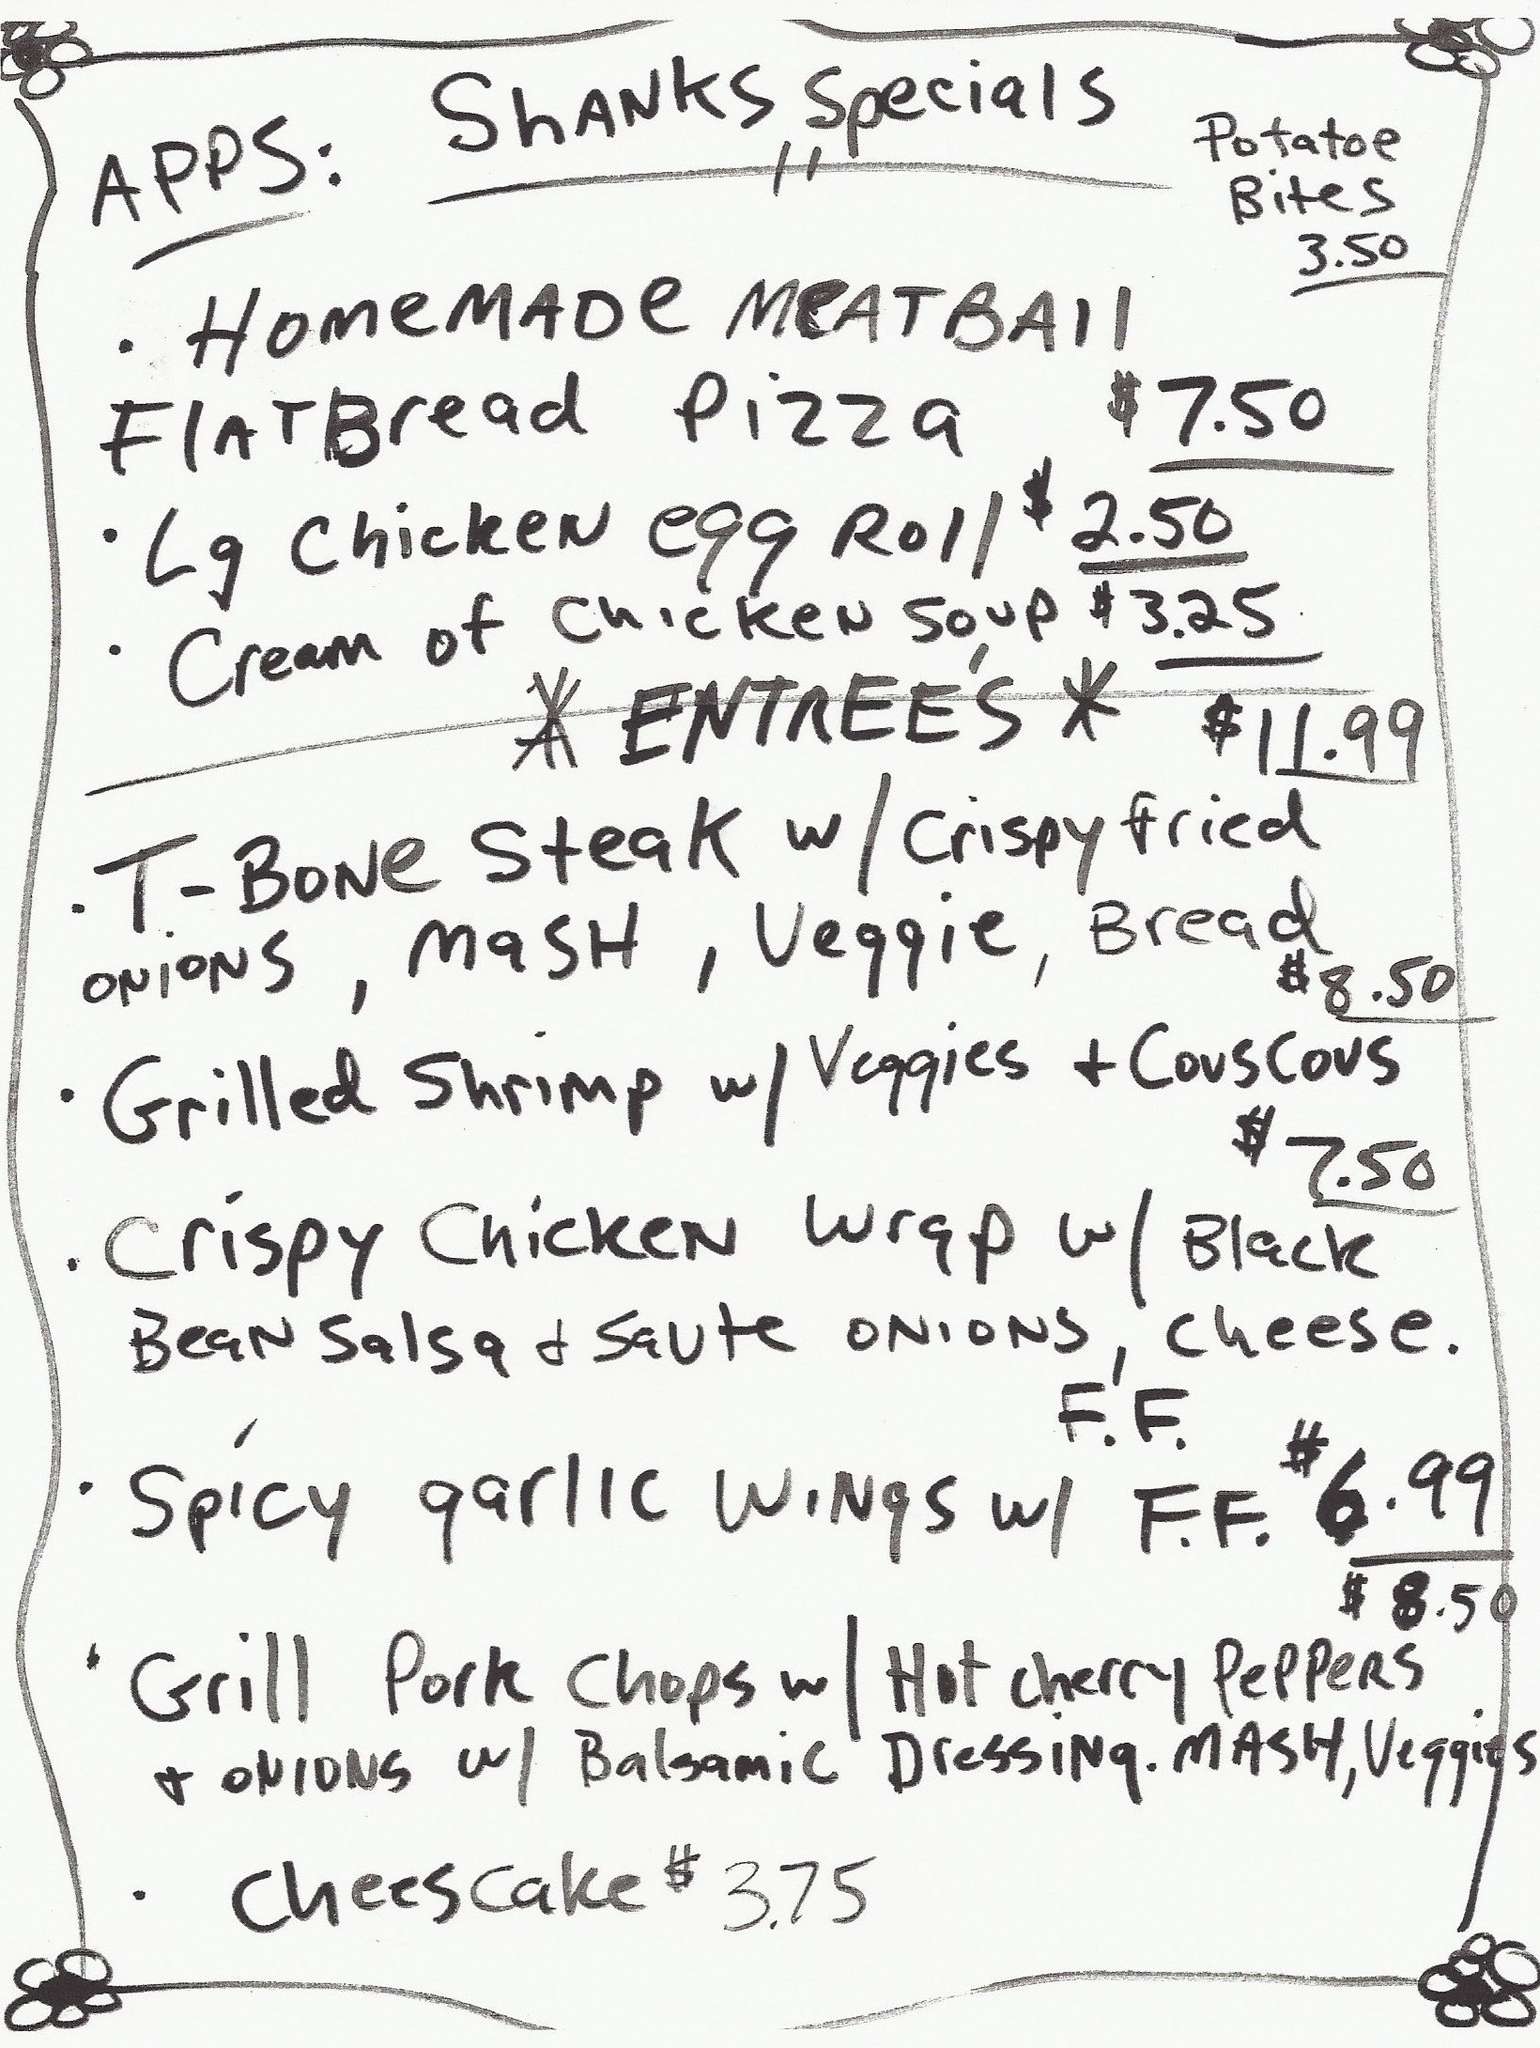 Shanks Specials
APPS:
Potatoe
Bites
3.50
· Homemade Meatball
Flatbread Pizza $7.50
· Lg Chicken egg Roll $2.50
· Cream of Chicken Soup $3.25
* ENTREE'S *
$11.99
· T-Bone Steak w/ Crispy fried
onions, mash, Veggie, Bread
$8.50
· Grilled Shrimp w/ Veggies + Couscous
$7.50
· Crispy Chicken Wrap w/ Black
Bean Salsa + Saute onions, cheese.
F.F.
· Spicy garlic Wings w/ F.F. $6.99
$8.50
· Grill Pork Chops w/ Hot cherry Peppers
+ onions w/ Balsamic Dressing. MASH, Veggies
· Cheescake $3.75